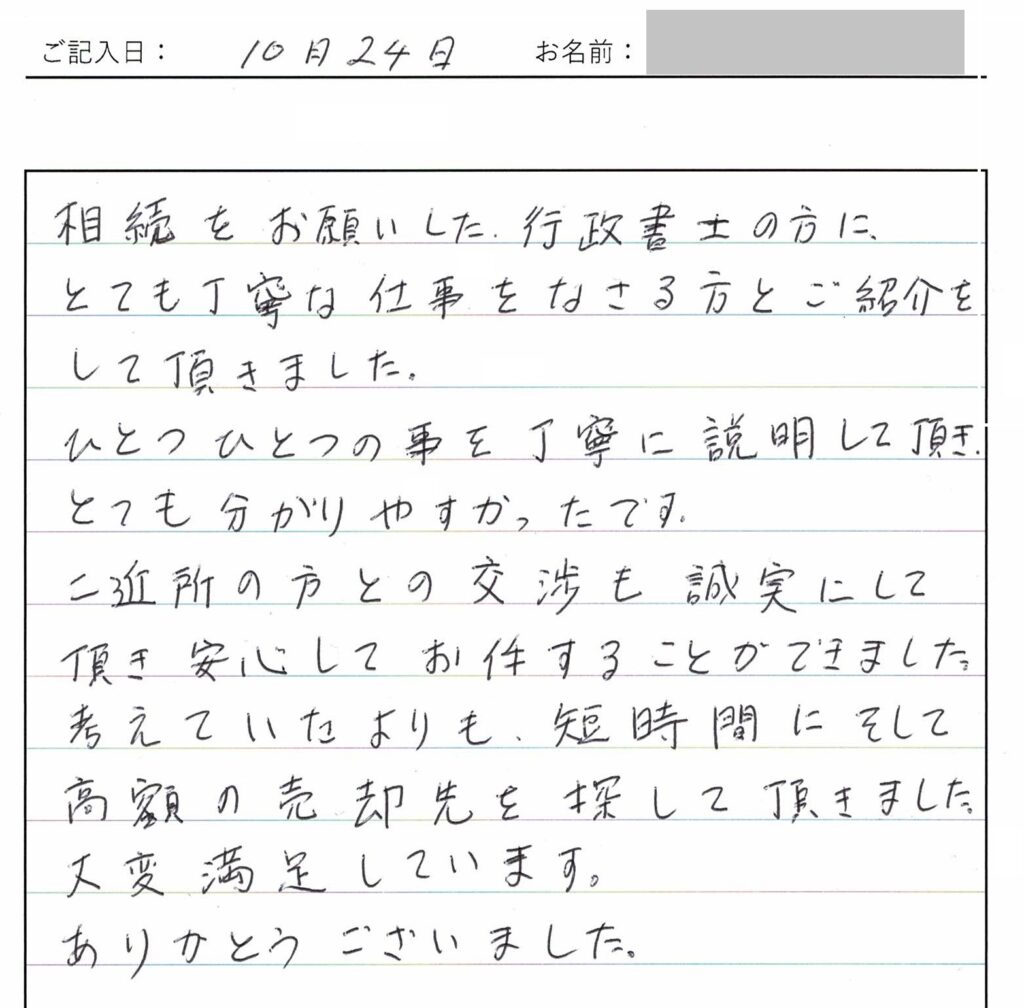 ご記入日： 10月24日 お名前：
相続をお願いした、行政書士の方に、
とても丁寧な仕事をなさる方とご紹介を
して頂きました。
ひとつひとつの事を丁寧に説明して頂き、
とても分がりやすかったです。
ご近所の方との交渉も誠実にして
頂き安心してお件することができました。
考えていたよりも、短時間にそして
高額の売却先を探して頂きました。
大変満足しています。
ありがとうございました。